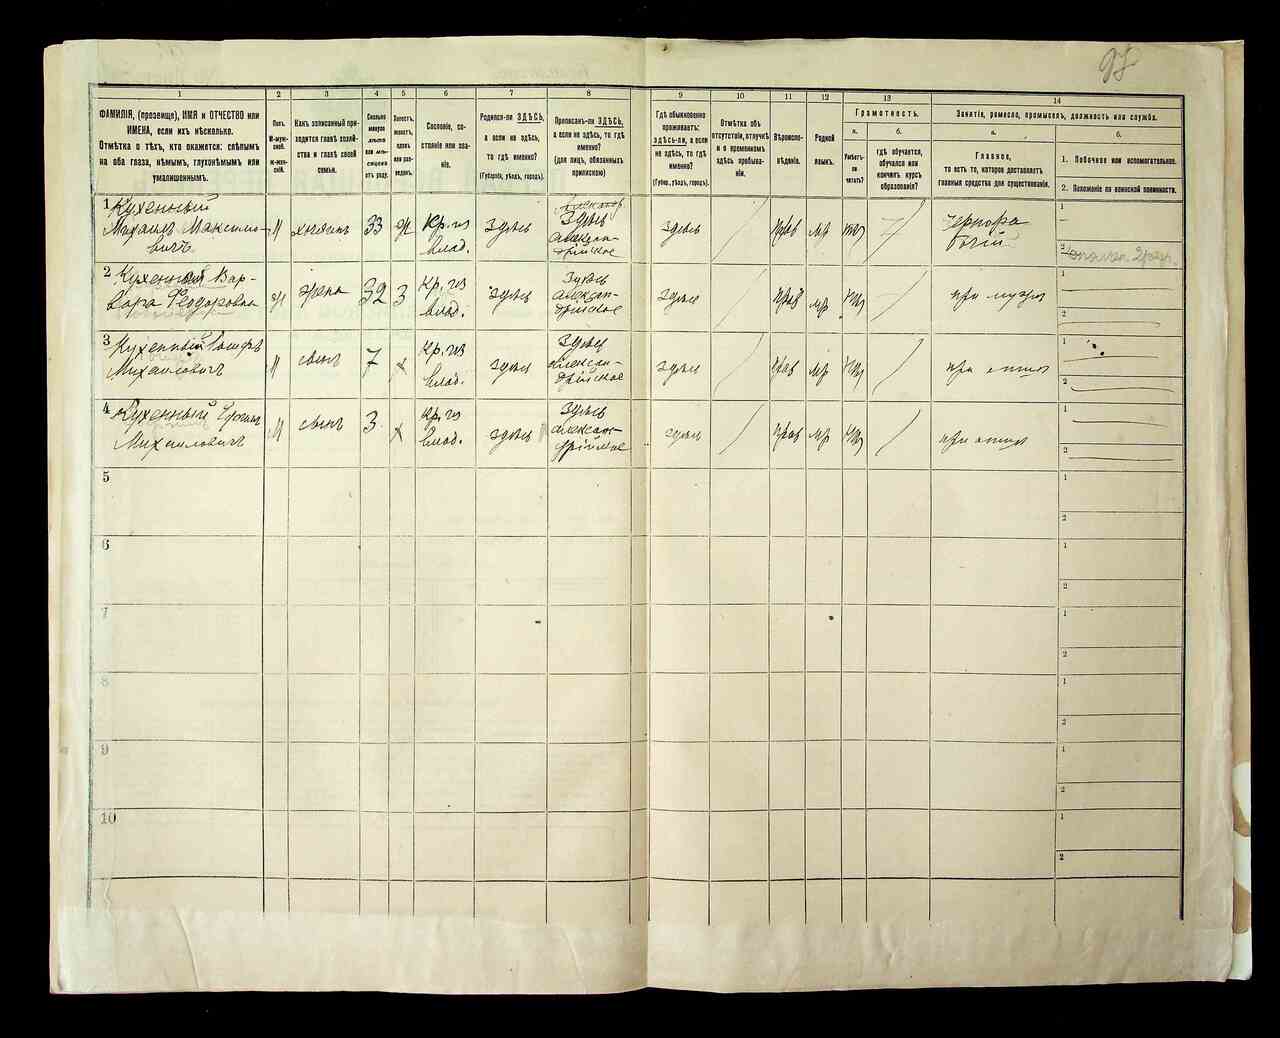 97
1 2 3 4 5 6 7 8 9 10 11 12 13 14
ФАМИЛІЯ, (прозвище), ИМЯ и ОТЧЕСТВО или
ИМЕНА, если ихъ нѣсколько.
Отмѣтка о тѣхъ, кто окажется: слѣпымъ
на оба глаза, нѣмымъ, глухонѣмымъ или
умалишеннымъ.
Полъ.
М-муж-
ской.
Ж-жен-
скій.
Какъ записанный при-
ходится главѣ хозяй-
ства и главѣ своей
семьи.
Сколько
минуло
лѣтъ
или мѣ-
сяцевъ
отъ роду.
Холостъ,
женатъ,
вдовъ
или раз-
веденъ.
Сословіе, со-
стояніе или зва-
ніе.
Родился-ли ЗДѢСЬ,
а если не здѣсь,
то гдѣ именно?
(Губернія, уѣздъ, городъ).
Приписанъ-ли ЗДѢСЬ,
а если не здѣсь, то гдѣ
именно?
(для лицъ, обязанныхъ
припискою)
Гдѣ обыкновенно
проживаетъ:
здѣсь-ли, а если
не здѣсь, то гдѣ
именно?
(Губер., уѣздъ, городъ).
Отмѣтка объ
отсутствіи, отлучкѣ
и о временномъ
здѣсь пребыва-
ніи.
Вѣроиспо-
вѣданіе.
Родной
языкъ.
Грамотность.
а.
Умѣетъ-
ли
читать?
б.
гдѣ обучается,
обучался или
кончилъ курсъ
образованія?
Занятіе, ремесло, промыселъ, должность или служба.
а.
Главное,
то есть то, которое доставляетъ
главныя средства для существованія.
б.
1. Побочное или вспомогательное.
2. Положеніе по воинской повинности.
1 Кухенный
Михаилъ Максимо-
вичъ
М хозяинъ 33 ж
Кр. из
влад.
здѣсь
Здѣсь
алексан-
дрійское
здѣсь прав мр
1
2
2 Кухенный Вар-
вара Феодоровна
ж жена 32 з
Кр. из
влад.
здѣсь
Здѣсь
алексан-
дрійское
здѣсь прав мр при мужѣ
1
2
3 Кухенный
Михаиловичъ
М сынъ 7 х
Кр. из
влад.
здѣсь
Здѣсь
алексан-
дрійское
здѣсь прав мр при отцѣ
1
2
4 Кухенный
Михаиловичъ
М сынъ 3 х
Кр. из
влад.
здѣсь
Здѣсь
алексан-
дрійское
здѣсь прав мр при отцѣ
1
2
5 1
2
6 1
2
7 1
2
8 1
2
9 1
2
10 1
2